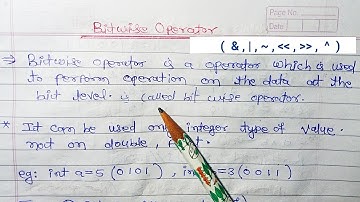 Page No.
Date
Bitwise Operator
( &, |, ~, <<, >>, ^ )
⇒ Bitwise operator is a operator which is used
to perform operation on the data at the
bit level. is called bit wise operator.
* It can be used only integer type of value.
not on double,
eg: int a=5 (0101), int =3(0011)